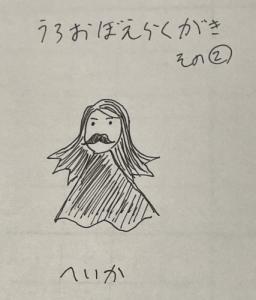 うろおぼえらくがき
その②
へいか